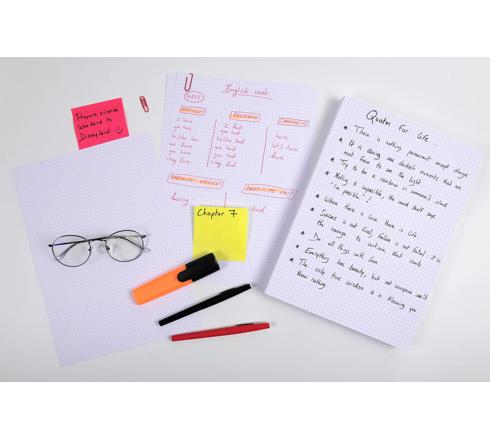 Prepare surprise
Weekend to
Disneyland
English verb
HAVE
PRESENT
PRETERITE
IMPERATIVE
I have
you have
he/she has
we have
you have
they have
I had
you had
he/she had
we had
you had
they had
have
let's have
have
PARTICIPLE PRESENT
PARTICIPLE PAST
having
had
Chapter 7
Quotes For Life:
There is nothing permanent except change
It is during our darkest moments that we
must focus to see the light
Try to be a rainbow in someone's cloud
Nothing is impossible, the word itself says
"I'm possible"!
Where there is love there is life
Success is not final, failure is not fatal: it is
the courage to continue that counts
Do all things with love
Everything has beauty, but not everyone can
The only true wisdom is in knowing you
Know nothing.